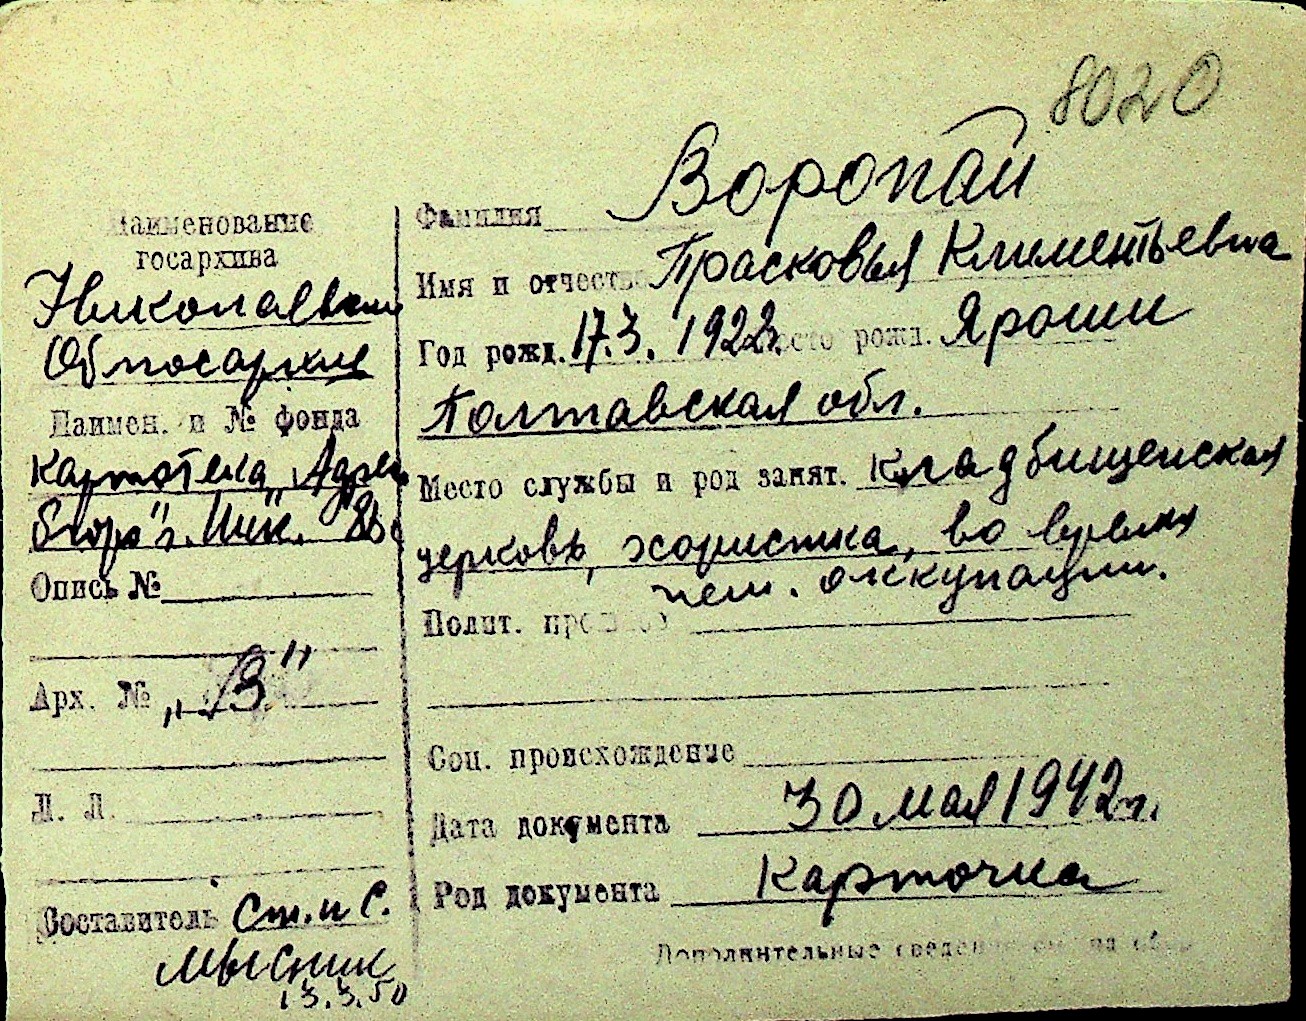 8020
Наименование
госархива
Николаевский
Облгосархив
Наимен. и № фонда
картотека „Адрес
бюро" г. Ник.
Опись №
Арх. № „В"
Л. Л.
Составитель Ст. н. с.
Мысник
13.3.50
Фамилия Воропай
Имя и отчество Прасковья Климентьевна
Год рожд. 17.3.1922. Место рожд. Яроши
Полтавская обл.
Место службы и род занят. Кладбищенская
церковь, хористка, во время
нем. оккупации.
Полит.
Соц. происхождение
Дата документа 30 мая 1942 г.
Род документа Карточка
Дополнительные сведения на обор.